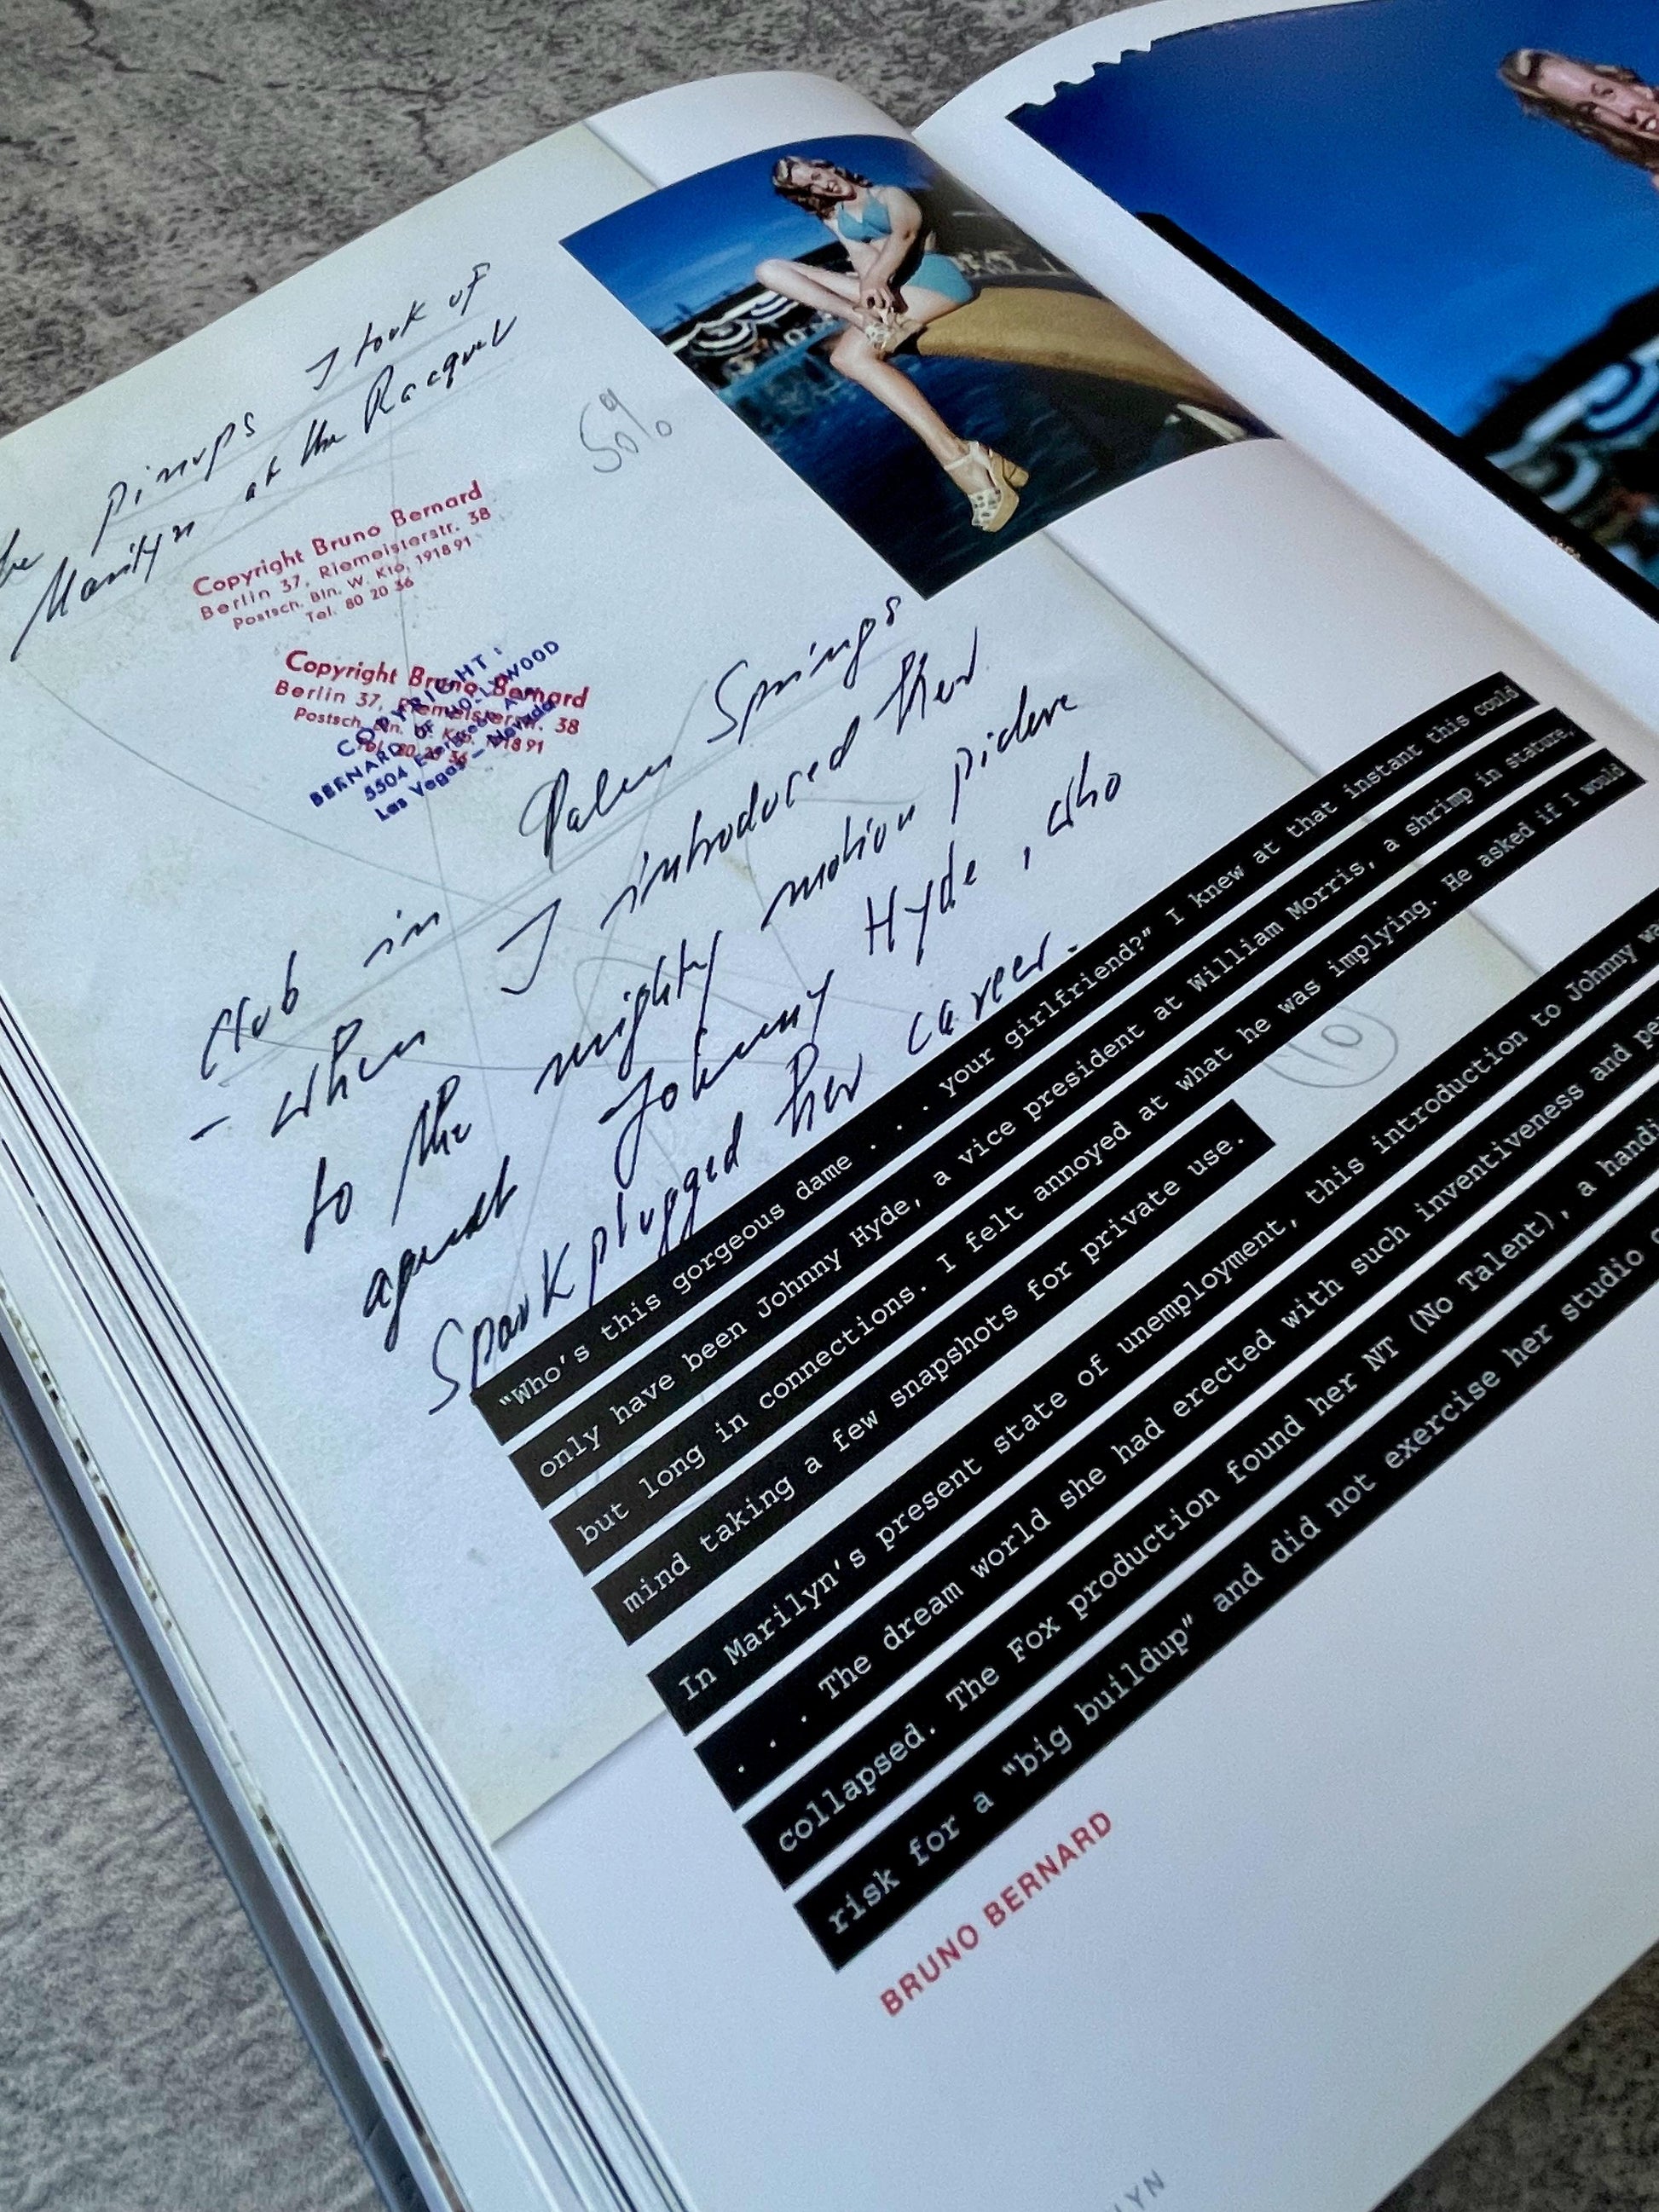 pinups I took of
Marilyn at the Racquet
50%
Copyright Bruno Bernard
Berlin 37, Riemeisterstr. 38
Postsch. Bln. W. Kto. 1918 91
Tel. 80 20 36
Copyright Bruno Bernard
Berlin 37, Riemeisterstr. 38
Postsch. Bln. W. Kto. 1918 91
Tel. 80 20 36
COPYRIGHT:
BERNARD OF HOLLYWOOD
5504 Evergreen Av.
Las Vegas - Nevada
Club in Palm Springs
- when I introduced her
to the mighty motion picture
agent Johnny Hyde, who
Sparkplugged her career.
10
"Who's this gorgeous dame . . . your girlfriend?" I knew at that instant this could
only have been Johnny Hyde, a vice president at William Morris, a shrimp in stature,
but long in connections. I felt annoyed at what he was implying. He asked if I would
mind taking a few snapshots for private use.
In Marilyn's present state of unemployment, this introduction to Johnny
. . . The dream world she had erected with such inventiveness and
collapsed. The Fox production found her NT (No Talent), a
risk for a "big buildup" and did not exercise her studio
BRUNO BERNARD